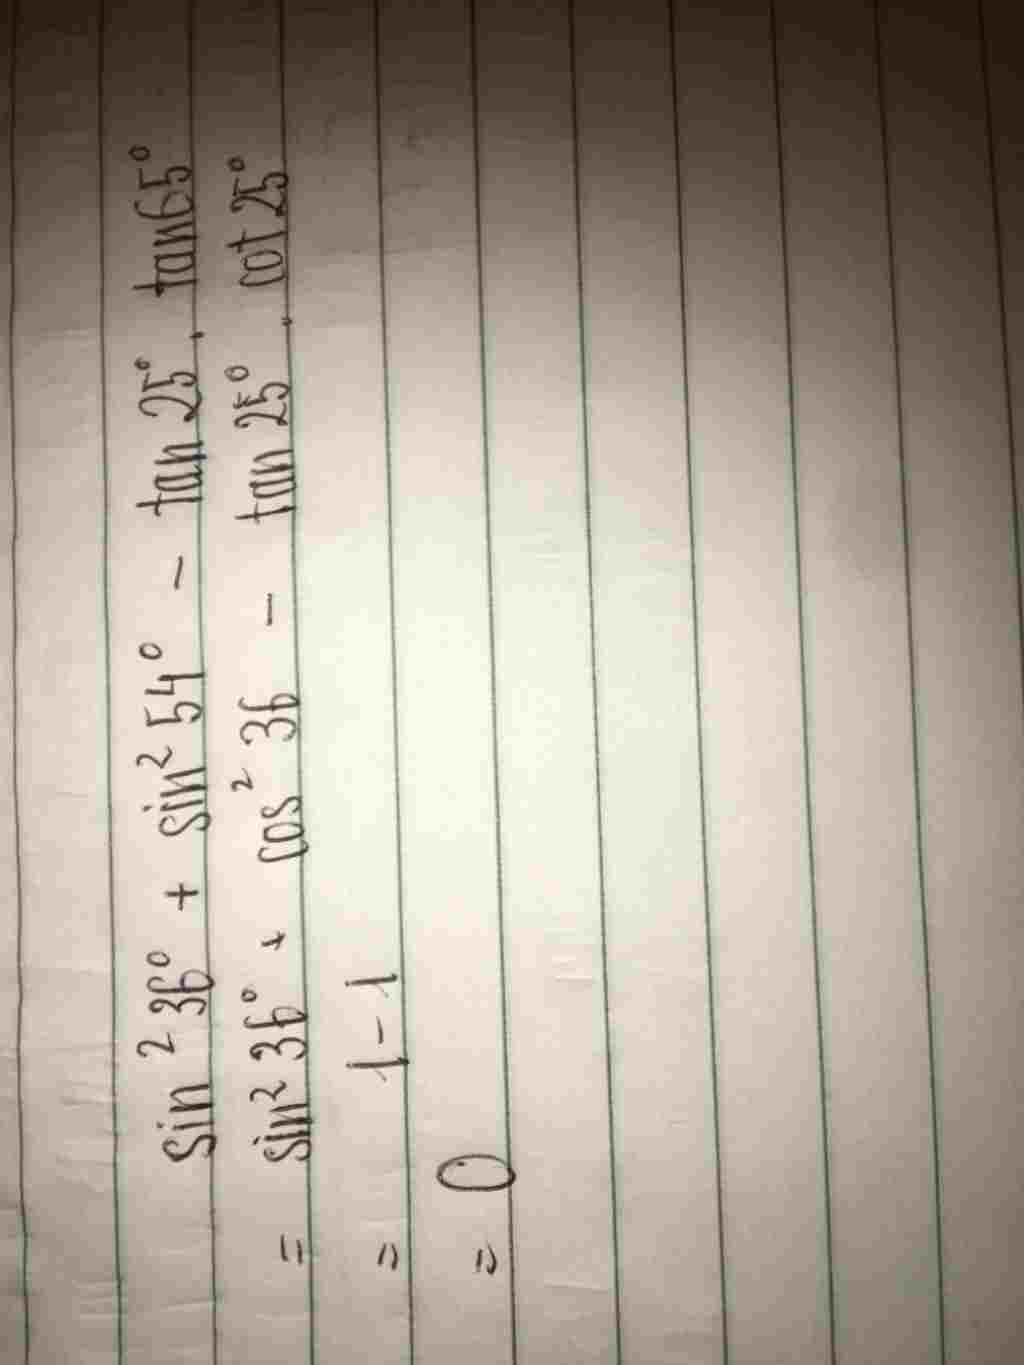 sin² 36° + sin² 54° - tan 25° . tan65°
= sin² 36° + cos² 36 - tan 25° . cot 25°
= 1-1
= 0